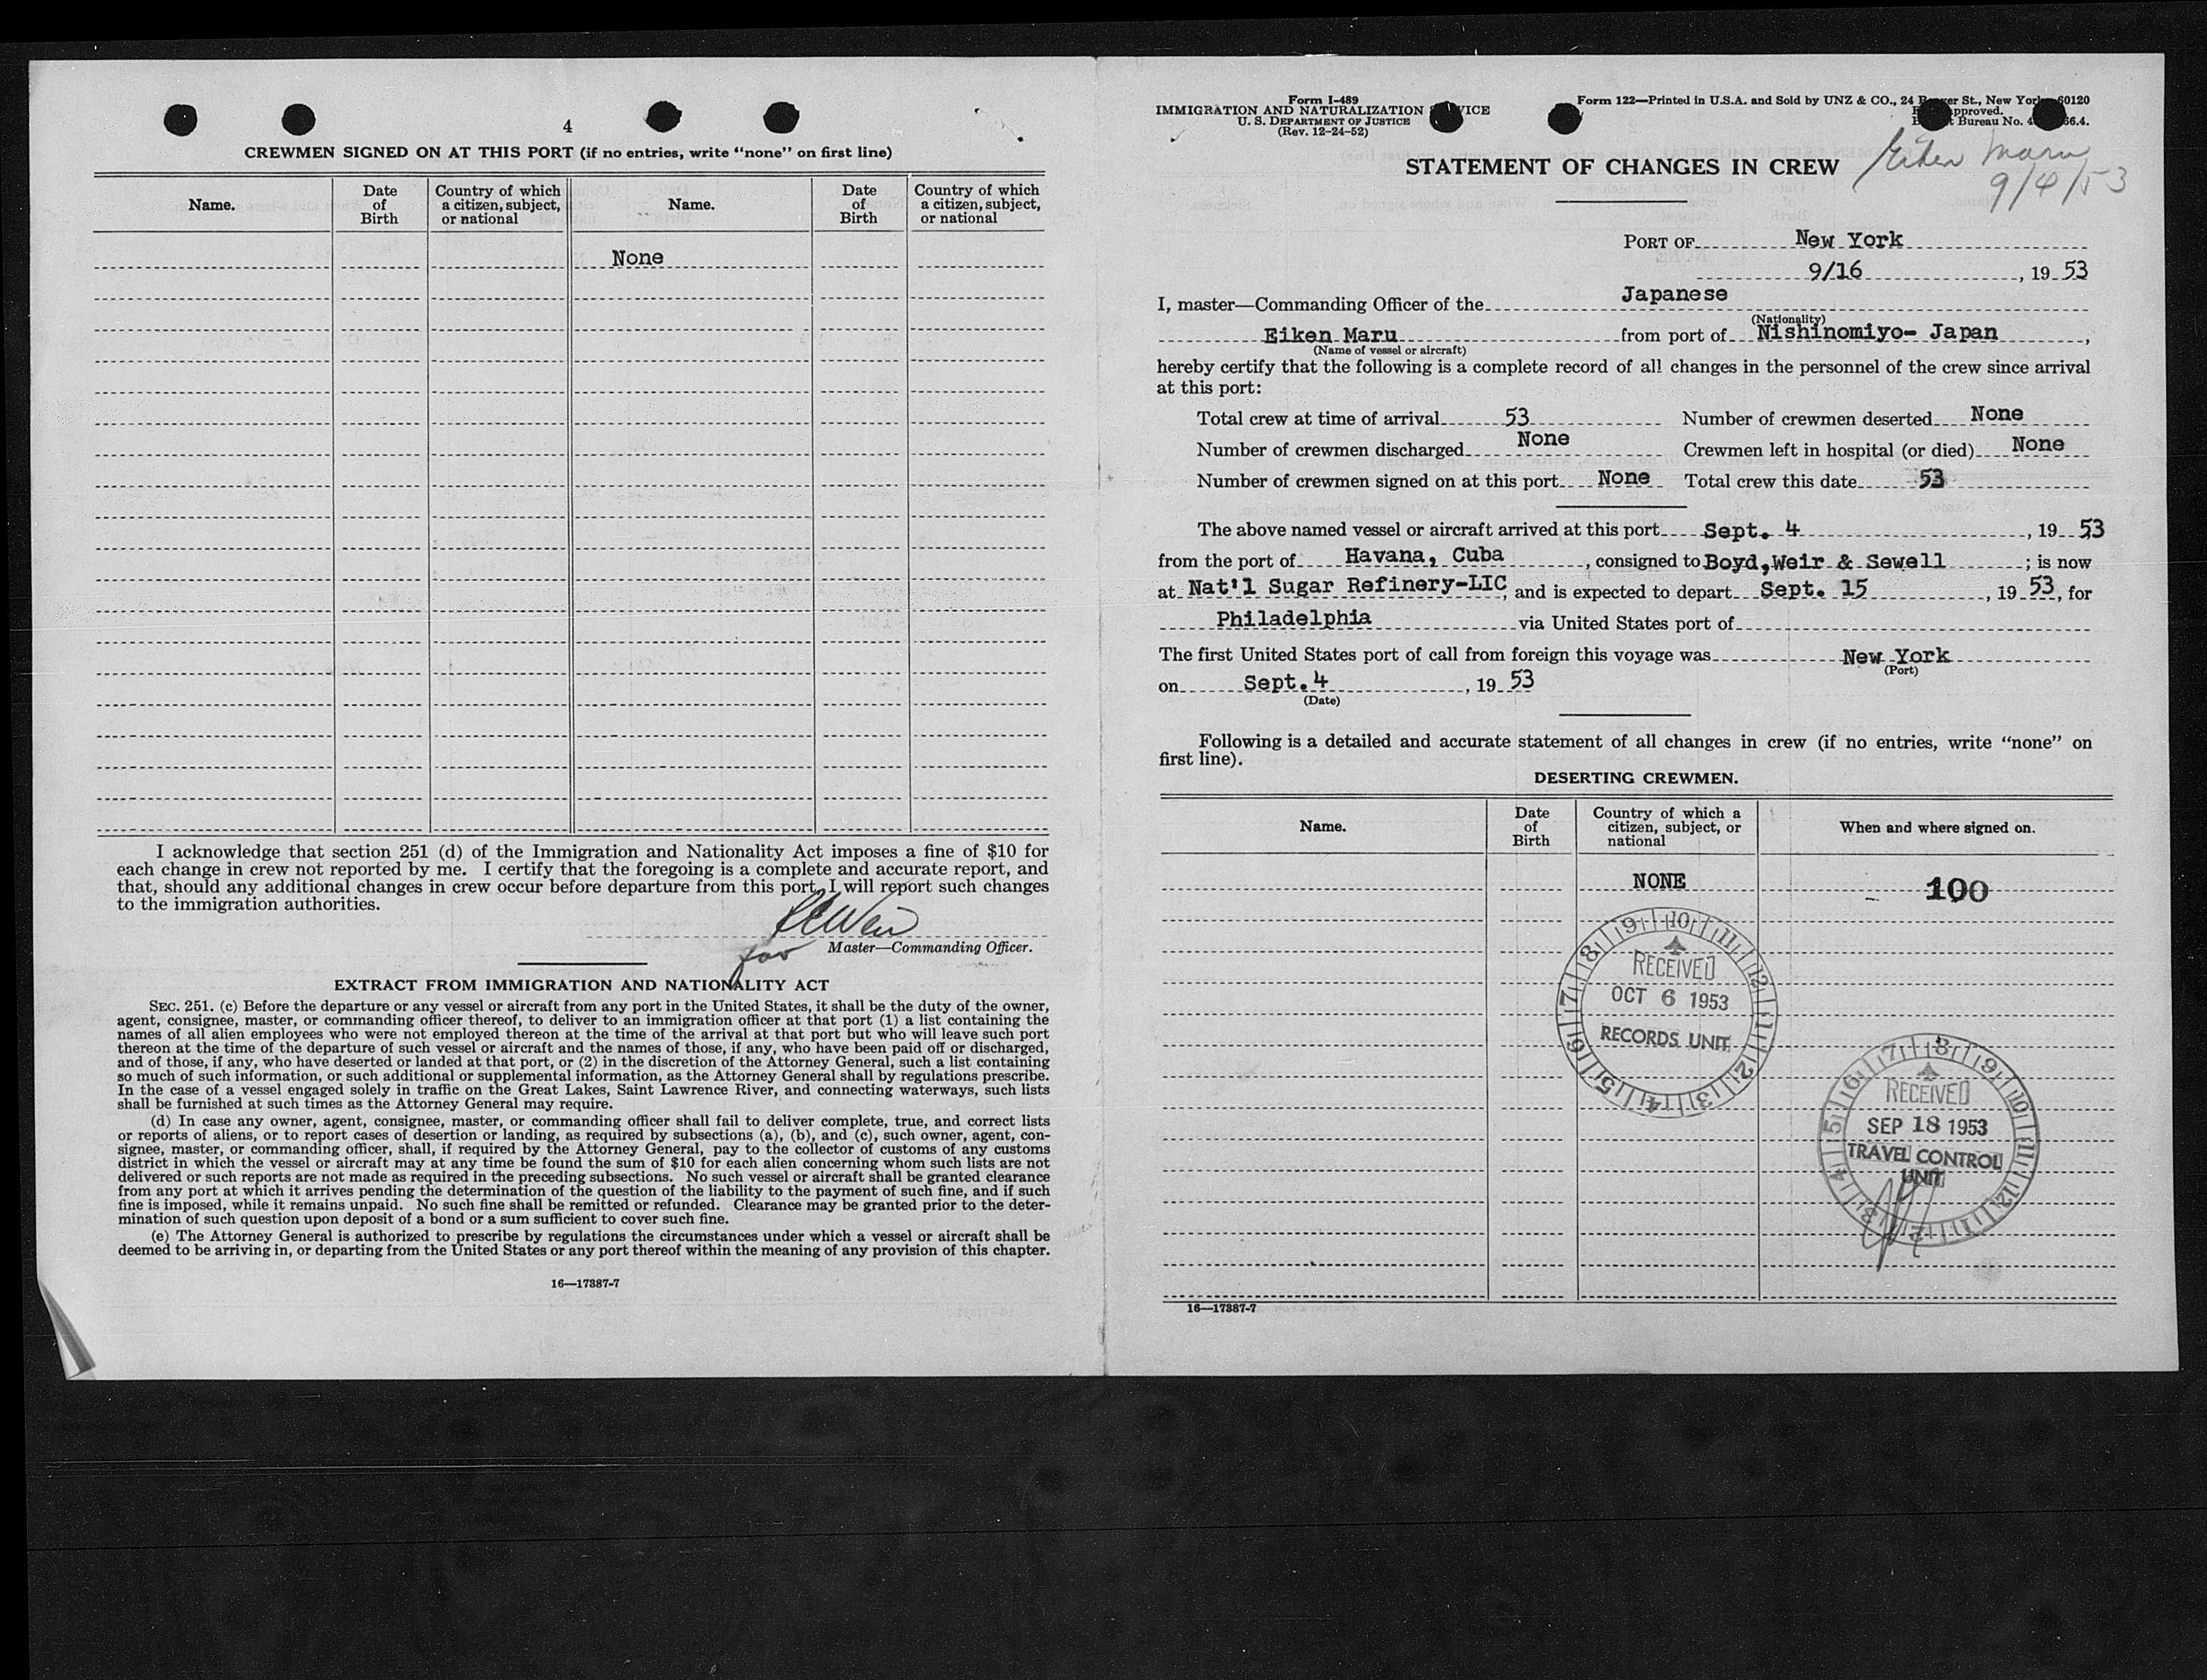 4
CREWMEN SIGNED ON AT THIS PORT (if no entries, write “none” on first line)
Name. Date of Birth Country of which a citizen, subject, or national Name. Date of Birth Country of which a citizen, subject, or national
None
I acknowledge that section 251 (d) of the Immigration and Nationality Act imposes a fine of $10 for
each change in crew not reported by me. I certify that the foregoing is a complete and accurate report, and
that, should any additional changes in crew occur before departure from this port, I will report such changes
to the immigration authorities.
for Master—Commanding Officer.
EXTRACT FROM IMMIGRATION AND NATIONALITY ACT
SEC. 251. (c) Before the departure or any vessel or aircraft from any port in the United States, it shall be the duty of the owner,
agent, consignee, master, or commanding officer thereof, to deliver to an immigration officer at that port (1) a list containing the
names of all alien employees who were not employed thereon at the time of the arrival at that port but who will leave such port
thereon at the time of the departure of such vessel or aircraft and the names of those, if any, who have been paid off or discharged,
and of those, if any, who have deserted or landed at that port, or (2) in the discretion of the Attorney General, such a list containing
so much of such information, or such additional or supplemental information, as the Attorney General shall by regulations prescribe.
In the case of a vessel engaged solely in traffic on the Great Lakes, Saint Lawrence River, and connecting waterways, such lists
shall be furnished at such times as the Attorney General may require.
(d) In case any owner, agent, consignee, master, or commanding officer shall fail to deliver complete, true, and correct lists
or reports of aliens, or to report cases of desertion or landing, as required by subsections (a), (b), and (c), such owner, agent, con-
signee, master, or commanding officer, shall, if required by the Attorney General, pay to the collector of customs of any customs
district in which the vessel or aircraft may at any time be found the sum of $10 for each alien concerning whom such lists are not
delivered or such reports are not made as required in the preceding subsections. No such vessel or aircraft shall be granted clearance
from any port at which it arrives pending the determination of the question of the liability to the payment of such fine, and if such
fine is imposed, while it remains unpaid. No such fine shall be remitted or refunded. Clearance may be granted prior to the deter-
mination of such question upon deposit of a bond or a sum sufficient to cover such fine.
(e) The Attorney General is authorized to prescribe by regulations the circumstances under which a vessel or aircraft shall be
deemed to be arriving in, or departing from the United States or any port thereof within the meaning of any provision of this chapter.
16—17387-7
Form I-489
IMMIGRATION AND NATURALIZATION
U. S. DEPARTMENT OF JUSTICE
(Rev. 12-24-52)
Form 122—Printed in U.S.A. and Sold by UNZ & CO., 24 St., New York 60120
Bureau No.
STATEMENT OF CHANGES IN CREW
Eiken Maru
9/4/53
PORT OF New York
9/16, 19 53
I, master—Commanding Officer of the Japanese
(Nationality)
Eiken Maru from port of Nishinomiyo- Japan,
(Name of vessel or aircraft)
hereby certify that the following is a complete record of all changes in the personnel of the crew since arrival
at this port:
Total crew at time of arrival 53 Number of crewmen deserted None
Number of crewmen discharged None Crewmen left in hospital (or died) None
Number of crewmen signed on at this port None Total crew this date 53
The above named vessel or aircraft arrived at this port Sept. 4, 19 53
from the port of Havana, Cuba, consigned to Boyd,Weir & Sewell; is now
at Nat'l Sugar Refinery-LIC, and is expected to depart Sept. 15, 19 53, for
Philadelphia via United States port of
The first United States port of call from foreign this voyage was New York
(Port)
on Sept. 4, 19 53
(Date)
Following is a detailed and accurate statement of all changes in crew (if no entries, write “none” on
first line).
DESERTING CREWMEN.
Name. Date of Birth Country of which a citizen, subject, or national When and where signed on.
NONE 100
RECEIVED
OCT 6 1953
RECORDS UNIT
1 2 3 4 5 6 7 8 9 10 11 12
RECEIVED
SEP 18 1953
TRAVEL CONTROL
UNIT
1 2 3 4 5 6 7 8 9 10 11 12
16—17387-7